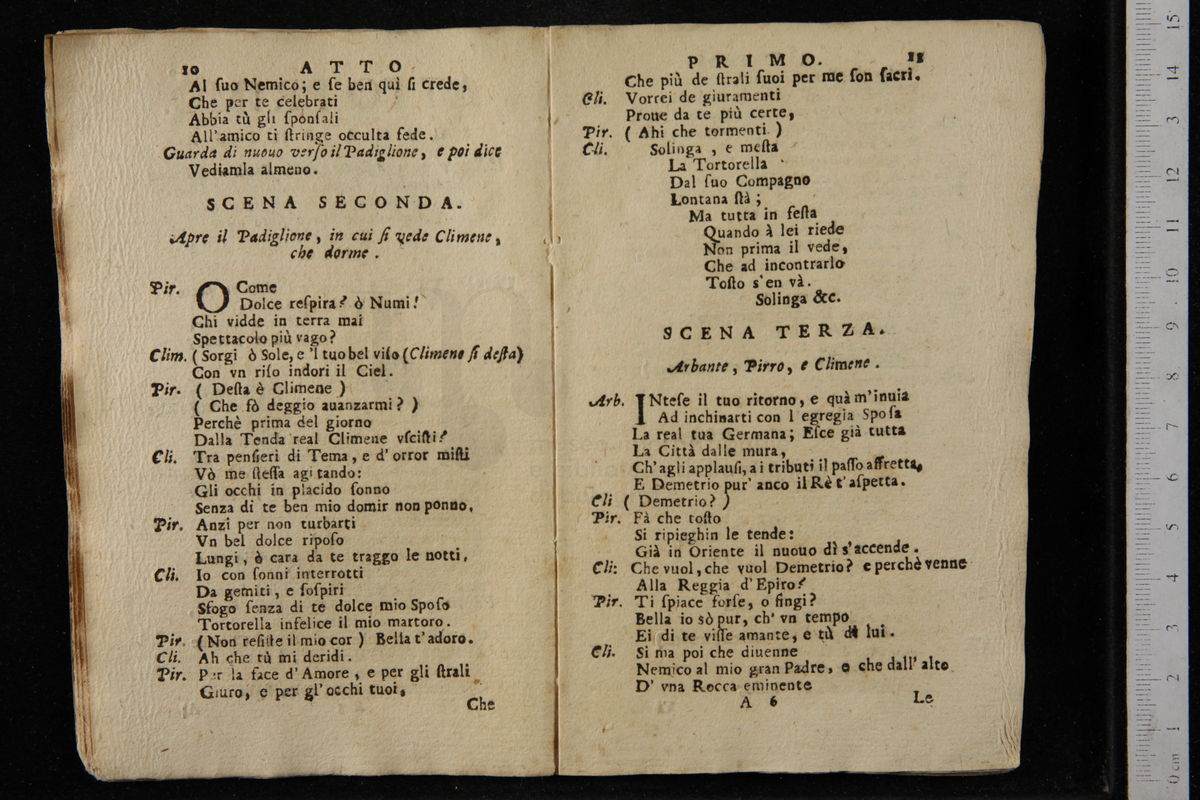 10 ATTO
Al ſuo Nemico; e ſe ben quì ſi crede,
Che per te celebrati
Abbia tù gli ſponſali
All'amico ti ſtringe occulta fede.
Guarda di nuouo verſo il Padiglione, e poi dice
Vediamla almeno.
SCENA SECONDA.
Apre il Padiglione, in cui ſi vede Climene,
che dorme.
Pir. O Come
Dolce reſpira? ò Numi!
Chi vidde in terra mai
Spettacolo più vago?
Clim. (Sorgi ò Sole, e 'l tuo bel viſo (Climene ſi deſta)
Con vn riſo indori il Ciel.
Pir. ( Deſta è Climene )
( Che fò deggio auanzarmi? )
Perchè prima del giorno
Dalla Tenda real Climene vſciſti?
Cli. Tra penſieri di Tema, e d' orror miſti
Vò me ſteſſa agitando:
Gli occhi in placido ſonno
Senza di te ben mio domir non ponno.
Pir. Anzi per non turbarti
Vn bel dolce ripoſo
Lungi, ò cara da te traggo le notti.
Cli. Io con ſonni interrotti
Da gemiti, e ſoſpiri
Sfogo ſenza di te dolce mio Spoſo
Tortorella infelice il mio martoro.
Pir. (Non reſiſte il mio cor ) Bella t'adoro.
Cli. Ah che tù mi deridi.
Pir. Per la face d'Amore, e per gli ſtrali
Giuro, e per gl'occhi tuoi,
Che
PRIMO. 11
Che più de ſtrali ſuoi per me ſon ſacri.
Cli. Vorrei de giuramenti
Proue da te più certe,
Pir. ( Ahi che tormenti )
Cli. Solinga, e meſta
La Tortorella
Dal ſuo Compagno
Lontana ſtà;
Ma tutta in feſta
Quando à lei riede
Non prima il vede,
Che ad incontrarlo
Toſto s'en và.
Solinga &c.
SCENA TERZA.
Arbante, Pirro, e Climene.
Arb. INteſe il tuo ritorno, e quà m'inuia
Ad inchinarti con l egregia Spoſa
La real tua Germana; Eſce già tutta
La Città dalle mura,
Ch'agli applauſi, a i tributi il paſſo affretta,
E Demetrio pur' anco il Rè t'aſpetta.
Cli ( Demetrio? )
Pir. Fà che toſto
Si ripieghin le tende:
Già in Oriente il nuouo dì s'accende.
Cli: Che vuol, che vuol Demetrio? e perchè venne
Alla Reggia d'Epiro?
Pir. Ti ſpiace forſe, o fingi?
Bella io sò pur, ch' vn tempo
Ei di te viſſe amante, e tù di lui.
Cli. Si ma poi che diuenne
Nemico al mio gran Padre, e che dall' alto
D' vna Rocca eminente
A 6 Le